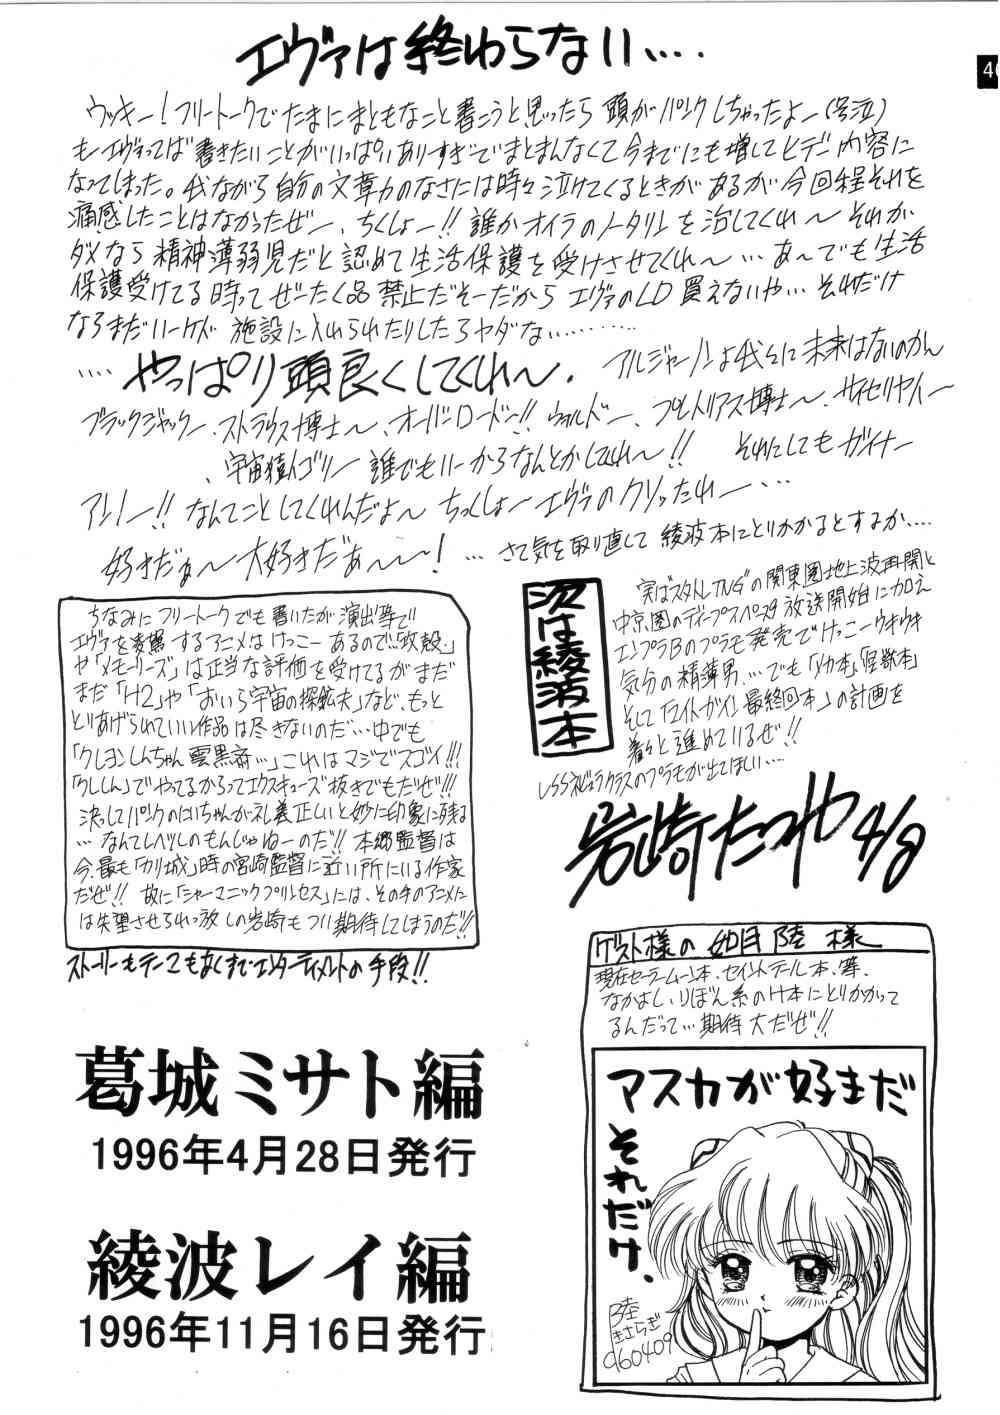 エヴァは終わらない…..
40
ウッキー!フリートークでたまにまともなこと書こうと思ったら頭がパンクしちゃったよー(号泣)
もーエヴァってば書きたいことがいっぱいありすぎでまとまんなくて今までにも増してヒデー内容に
なってしまった。我ながら自分の文章力のなさには時々泣けてくるときがあるが今回程それを
痛感したことはなかったぜー、ちくしょー!!誰かオイラのノータリンを治してくれ〜それが
ダメなら精神薄弱児だと認めて生活保護を受けさせてくれ〜…あ〜でも生活
保護受けてる時ってぜーたく品禁止だそーだからエヴァのLD買えないや…それだけ
ならまだいーけど施設に入れられたりしたらヤダな…………
….やっぱり頭良くしてくれ〜. アルジャーノンよ我々に未来はないのかん
ブラックジャックー、ストラウス博士〜、オーバーロードー!!ウォルドー、
、宇宙猿人ゴリー誰でもいーからなんとかしてくれ〜!! それにしてもガイナー
アンノー!!なんてことしてくれんだよ〜ちっくしょ〜エヴァのクソったれー…..
好きだぁ〜大好きだぁ〜〜! …さて気を取り直して綾波本にとりかかるとするか….
ちなみにフリートークでも書いたが演出等で
エヴァを凌駕するアニメはけっこーあるので…「攻殻」
や「メモリーズ」は正当な評価を受けてるがまだ
まだ「H2」や「おいら宇宙の探鉱夫」など、もっと
とりあげられていい作品は尽きないのだ…中でも
「クレヨンしんちゃん雲黒斎…」これはマジでスゴイ!!!
「クレしん」でやってるからってエクスキューズ抜きでもだぜ!!!
決してパンクのにいちゃんが礼義正しいと妙に印象に残る
…なんてレベルのもんじゃねーのだ!!本郷監督は
今、最も「カリ城」時の宮崎監督に近い所にいる作家
だぜ!!故に「シャーマニックプリンセス」には、その手のアニメに
は失望させられっ放しの岩崎もつい期待してしまうのだ!!
ストーリーもテーマもあくまでエンターティメントの手段!!
次は綾波本
実はスタトレTNGの関東圏地上波再開と
中京圏のディープスペース9放送開始に加え
エンプラBのプラモ発売でけっこーウキウキ
気分の精薄男、…でも「メカ本」、「怪獣本」
そして「マイトガイン最終回本」の計画を
着々と進めているぜ!!
クラスのプラモが出てほしい….
岩崎たつや 4/8
ゲスト様の如月陸様
現在セーラームーン本、セイントテール本、等、
なかよし、りぼん系のH本にとりかかって
るんだって…期待大だぜ!!
アスカが好きだ
それだけ、
陸
きさらぎ
960409
葛城ミサト編
1996年4月28日発行
綾波レイ編
1996年11月16日発行